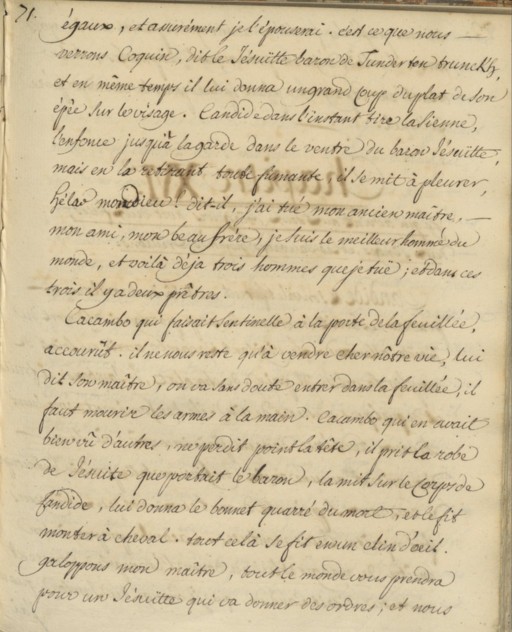 71.
égaux, et assurément je l'épouserai. c'est ce que nous
verrons Coquin, dit le Jésuitte baron de Tunder ten trunckh,
et en même temps il lui donna un grand coup du plat de son
épée sur le visage. Candide dans l'instant tire la sienne,
l'enfonce jusqu'à la garde dans le ventre du baron Jésuitte,
mais en la retirant toute fumante il se mit à pleurer,
hélas mon dieu! dit-il, j'ai tué mon ancien maitre, —
mon ami, mon beau frére, je suis le meilleur homme du
monde, et voilà déja trois hommes que je tüe; et dans ces
trois il y a deux prêtres.
Cacambo qui faisait sentinelle à la porte de la feuillée,
accourût. il ne nous reste qu'à vendre cher nôtre vie, lui
dit son maitre, on va sans doute entrer dans la feuillée, il
faut mourir les armes à la main. Cacambo qui en avait
bien vû d'autres, ne perdit point la tête, il prit la robe
de Jésuite que portait le baron, la mit sur le Corps de
Candide, lui donna le bonnet quarré du mort, et le fit
monter à cheval. tout celà se fit en un clin d'oeil.
galoppons mon maitre, tout le monde vous prendra
pour un Jésuitte qui va donner des ordres; et nous